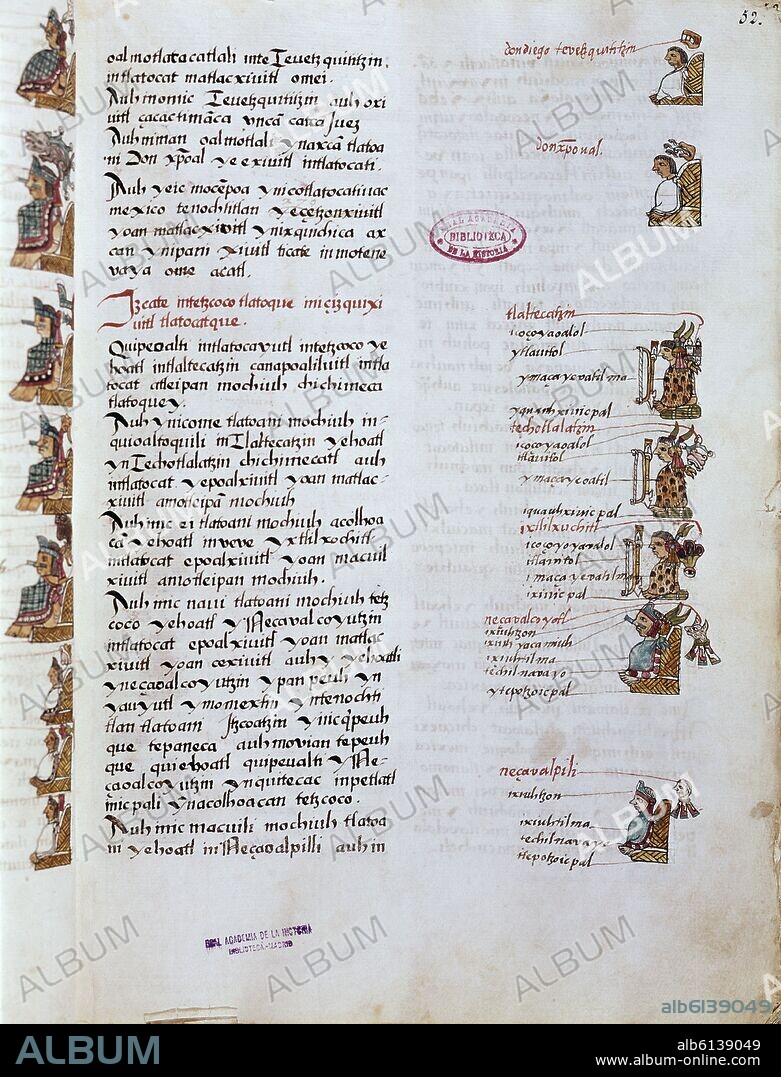 52.
oalmotlatocatlali inte Tevetzquintzin,
intlatocat matlacxiuitl omei.
Auh inomic Tevetzquititzin auh oxi
uitl çacactimãca
Auh niman oalmotlali ynaxcã tlatoa
ni Don xpõal yeexiuitl intlatocati.
Auh yeic mocẽpoa ynicotlatocativac
mexico tenochtitlan yecçetzonxiuitl
yoan matlacxiuitl ynixquichica ax
can ynipan xiuitl ticate inmotene
vaya ome acatl.
Izcate intetzcoco tlatoque iniçizquixi
uitl tlatocatque.
Quipeoalti intlatocayutl intetzcoco ye
hoatl intlaltecatzin çanapoaliluitl intla
tocat atleipan mochiuh chichimeca
tlatoque y.
Auh ynicome tlatoani mochiuh in-
quioaltoquili in Tlaltecatzin yehoatl
yn Techotlalatzin chichimecatl auh
intlatocat yepoalxiuitl yoan matlac-
xiuitl amotleipã mochiuh
Auh inic ei tlatoani mochiuh acolhoa
cã yehoatl inveve yxtlilxochitl
intlatocat epoalxiuitl yoan macuil
xiuitl amotleipan mochiuh.
Auh inic naui tlatoani mochiuh tetz
coco yehoatl yn Neçavalcoyutzin
intlatocat epoalxiuitl yoan matlac
xiuitl yoan cexiuitl auh yn yehoatl
yneçaoalcoyutzin ypan peuh yn
yauyutl ynomextin yntenochti
tlan tlatoani Itzcoatzin ynicq̃peuh
que tepaneca auh movian tepeuh
que quiehoatl quipevalti yn Ne-
çaoalcoyutzin ynquitecac inpetlatl
inicpali ynacolhoacan tetzcoco.
Auh inic macuili mochiuh tlatoa
ni yehoatl in Neçaoalpilli auh in
don diego tevetzquititzin
don xp̃oual.
REAL ACADEMIA
BIBLIOTECA
DE LA HISTORIA
tlaltecatzin
icoçoyaoalol
ytlauitol
ymaçayevatilma
yquauhxinicpal
techotlalatzin
icoçoyaoalol
itlauitol
ymaçayeoatil
iquauhxinicpal
ixtlilxuchitl
icoçoyoyaualol
itlauitol
imacayevatilma
ixinicpal
neçavalcoyotl
ixiuhtzon
ixiuhyacamiuh
ixiuhtilma
techilnavayo
ytepotzoicpal
neçavalpili
ixiuhtzon
ixiuhtilma
techilnavayo
itepotzoicpal
REAL ACADEMIA DE LA HISTORIA
BIBLIOTECA-MADRID
alb6139049
ALBUM
alb6139049
www.album-online.com